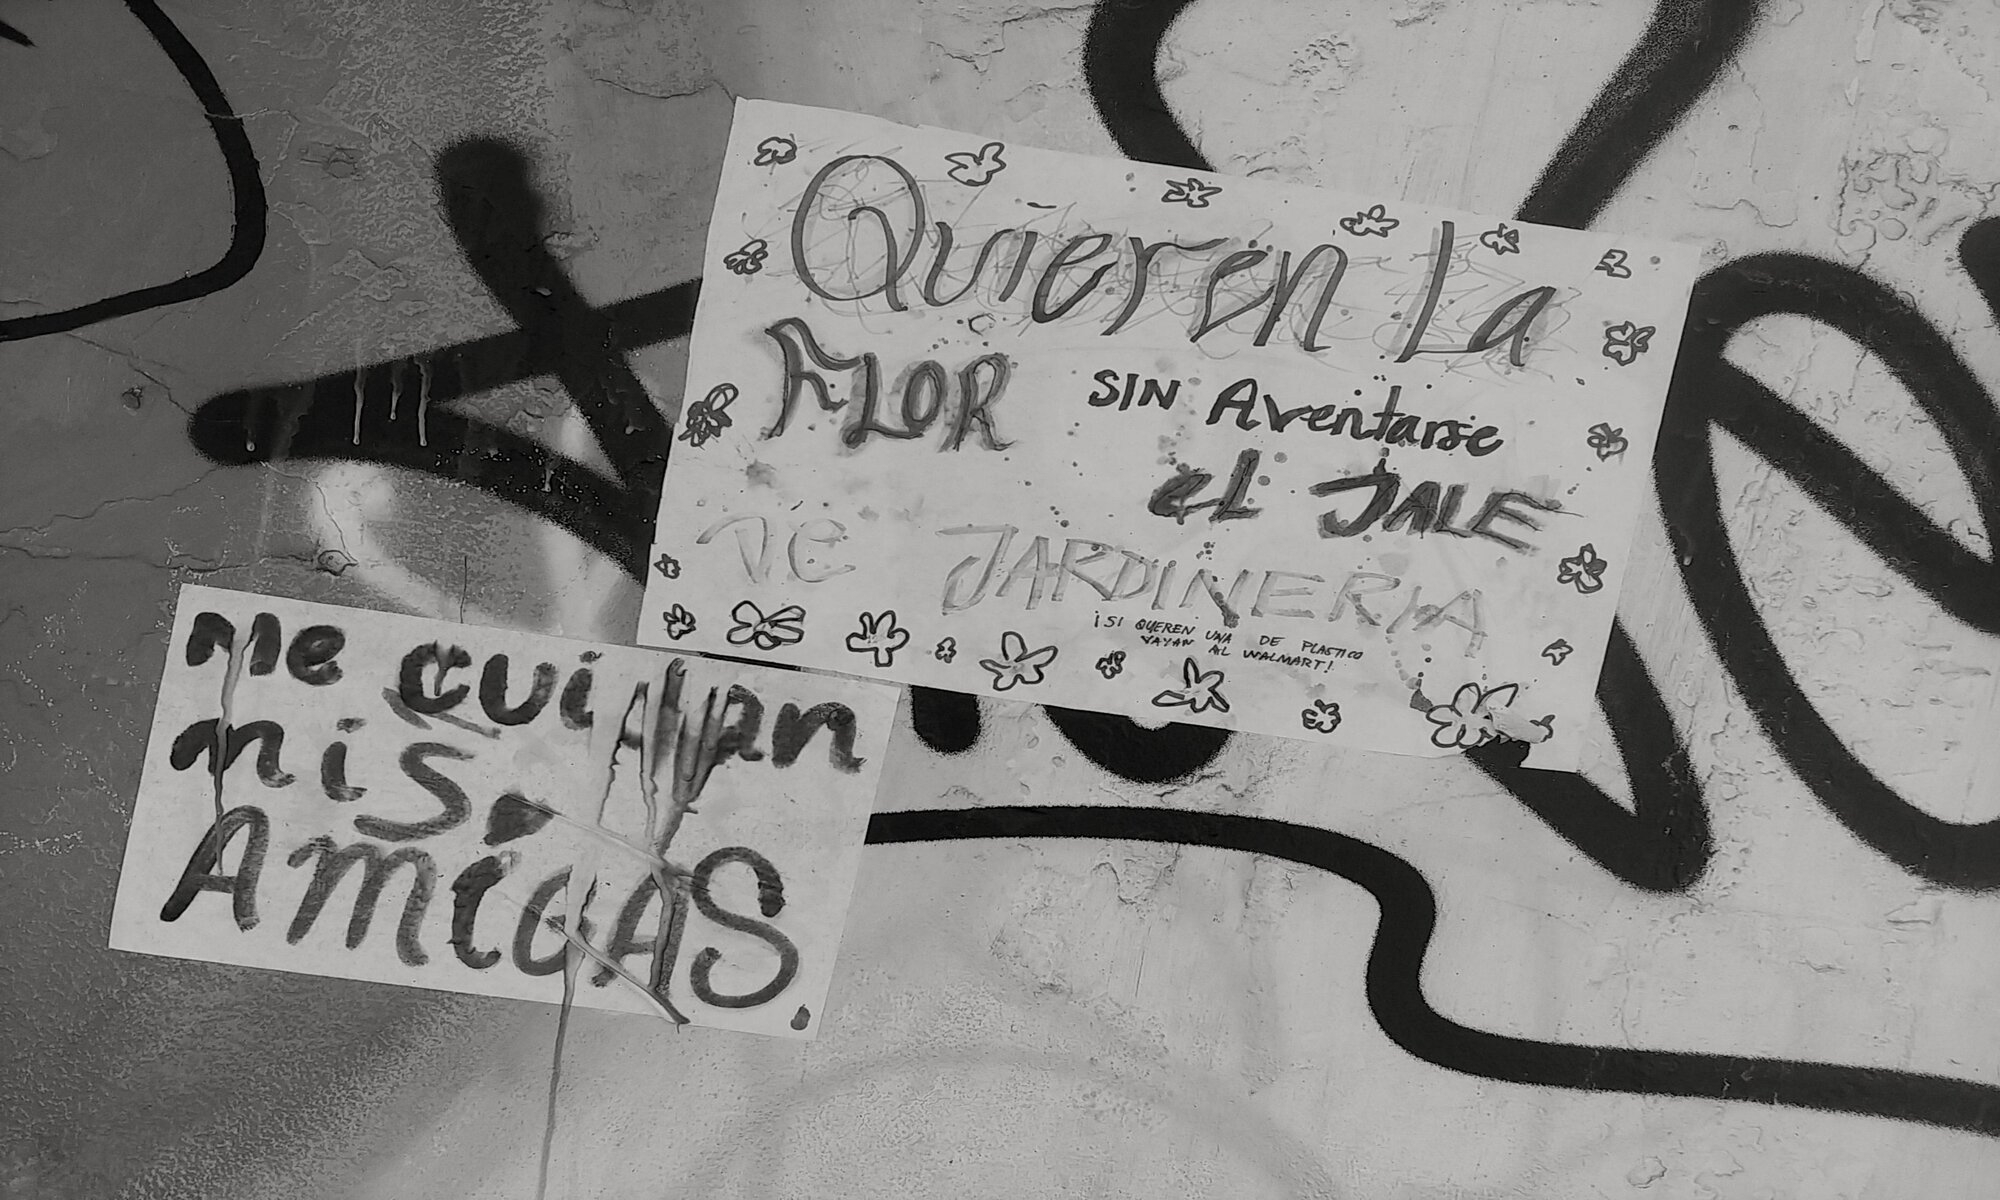 Quieren La
FLOR SIN Aventarse
eL JALE
DE JARDINERIA
¡SI QUEREN UNA DE PLASTICO
VAYAN AL WALMART!
Me cuidan
mis
AMiGAS.